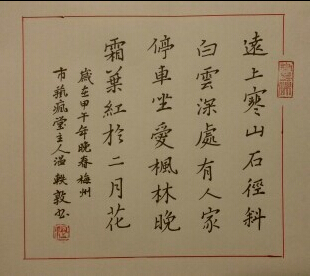 遠上寒山石徑斜
白雲深處有人家
停車坐愛楓林晚
霜葉紅於二月花
歲在甲午年晚春梅州
市執瘋堂主人溫